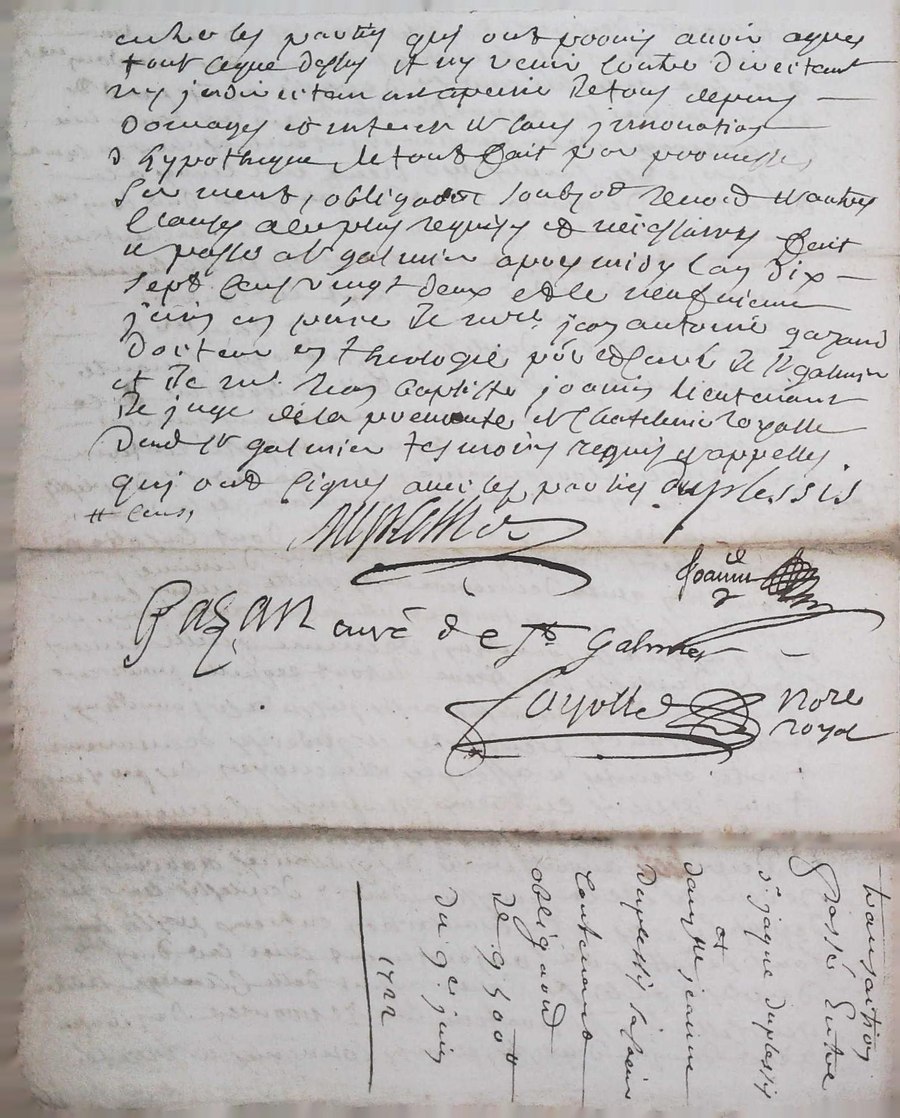 entre les parties qui ont promis avoir agreé
tout ceque dessus et ny venir contre directemt
ny jndirectemt apeine de tous depens
domages et interes et sans jnnovation
d hypotheque le tout fait par promesse,
serment, obligaõn soubzõn renõn et autres
clauses a ce plus requises et necessaires fait
et passé a st galmier apres midy lan dix
sept cens vingt deux et le neufvieme
juin en pnce de mre jean antoine gazand
docteur en theologie pbre et curé de st galmier
et de mre jean baptiste joanin lieutenant
de juge de la prevosté et chastelenie royalle
dud st galmier tesmoins requis et appellés
qui ont signés avec les parties duplessis
# cens,
duplessis
Joanin
Gazan curé de st Galmier
Cayotte nore
royal
transaction
Passée Entre
sr jaque duplessy
et
damlle jeanne
duplessy sa soeur
Contenant
obligaõn
de 9500 ₶
du 9e juin
1722